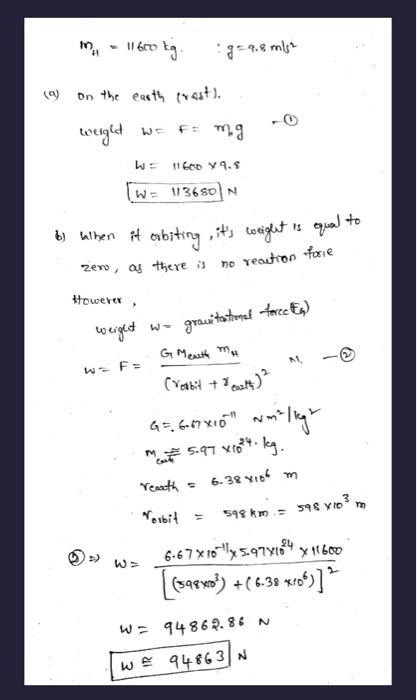 m_H = 11600 kg. : g = 9.8 m/s²
(a) On the earth (rest).
weight W = F = m_H g -①
W = 11600 × 9.8
W = 113680 N
b) When it orbiting, it's weight is equal to
zero, as there is no reaction force
However,
weight W = gravitational force (F_G)
W = F = G M_earth m_H / (r_orbit + r_earth)² N. -②
G = 6.67 × 10⁻¹¹ Nm²/kg²
M_earth ≅ 5.97 × 10²⁴ kg.
r_earth = 6.38 × 10⁶ m
r_orbit = 598 km. = 598 × 10³ m
② ⇒ W = 6.67 × 10⁻¹¹ × 5.97 × 10²⁴ × 11600 / [(598 × 10³) + (6.38 × 10⁶)]²
W = 94862.86 N
W ≅ 94863 N